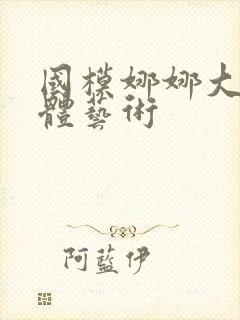 國模娜娜大
體藝術
阿藍伊